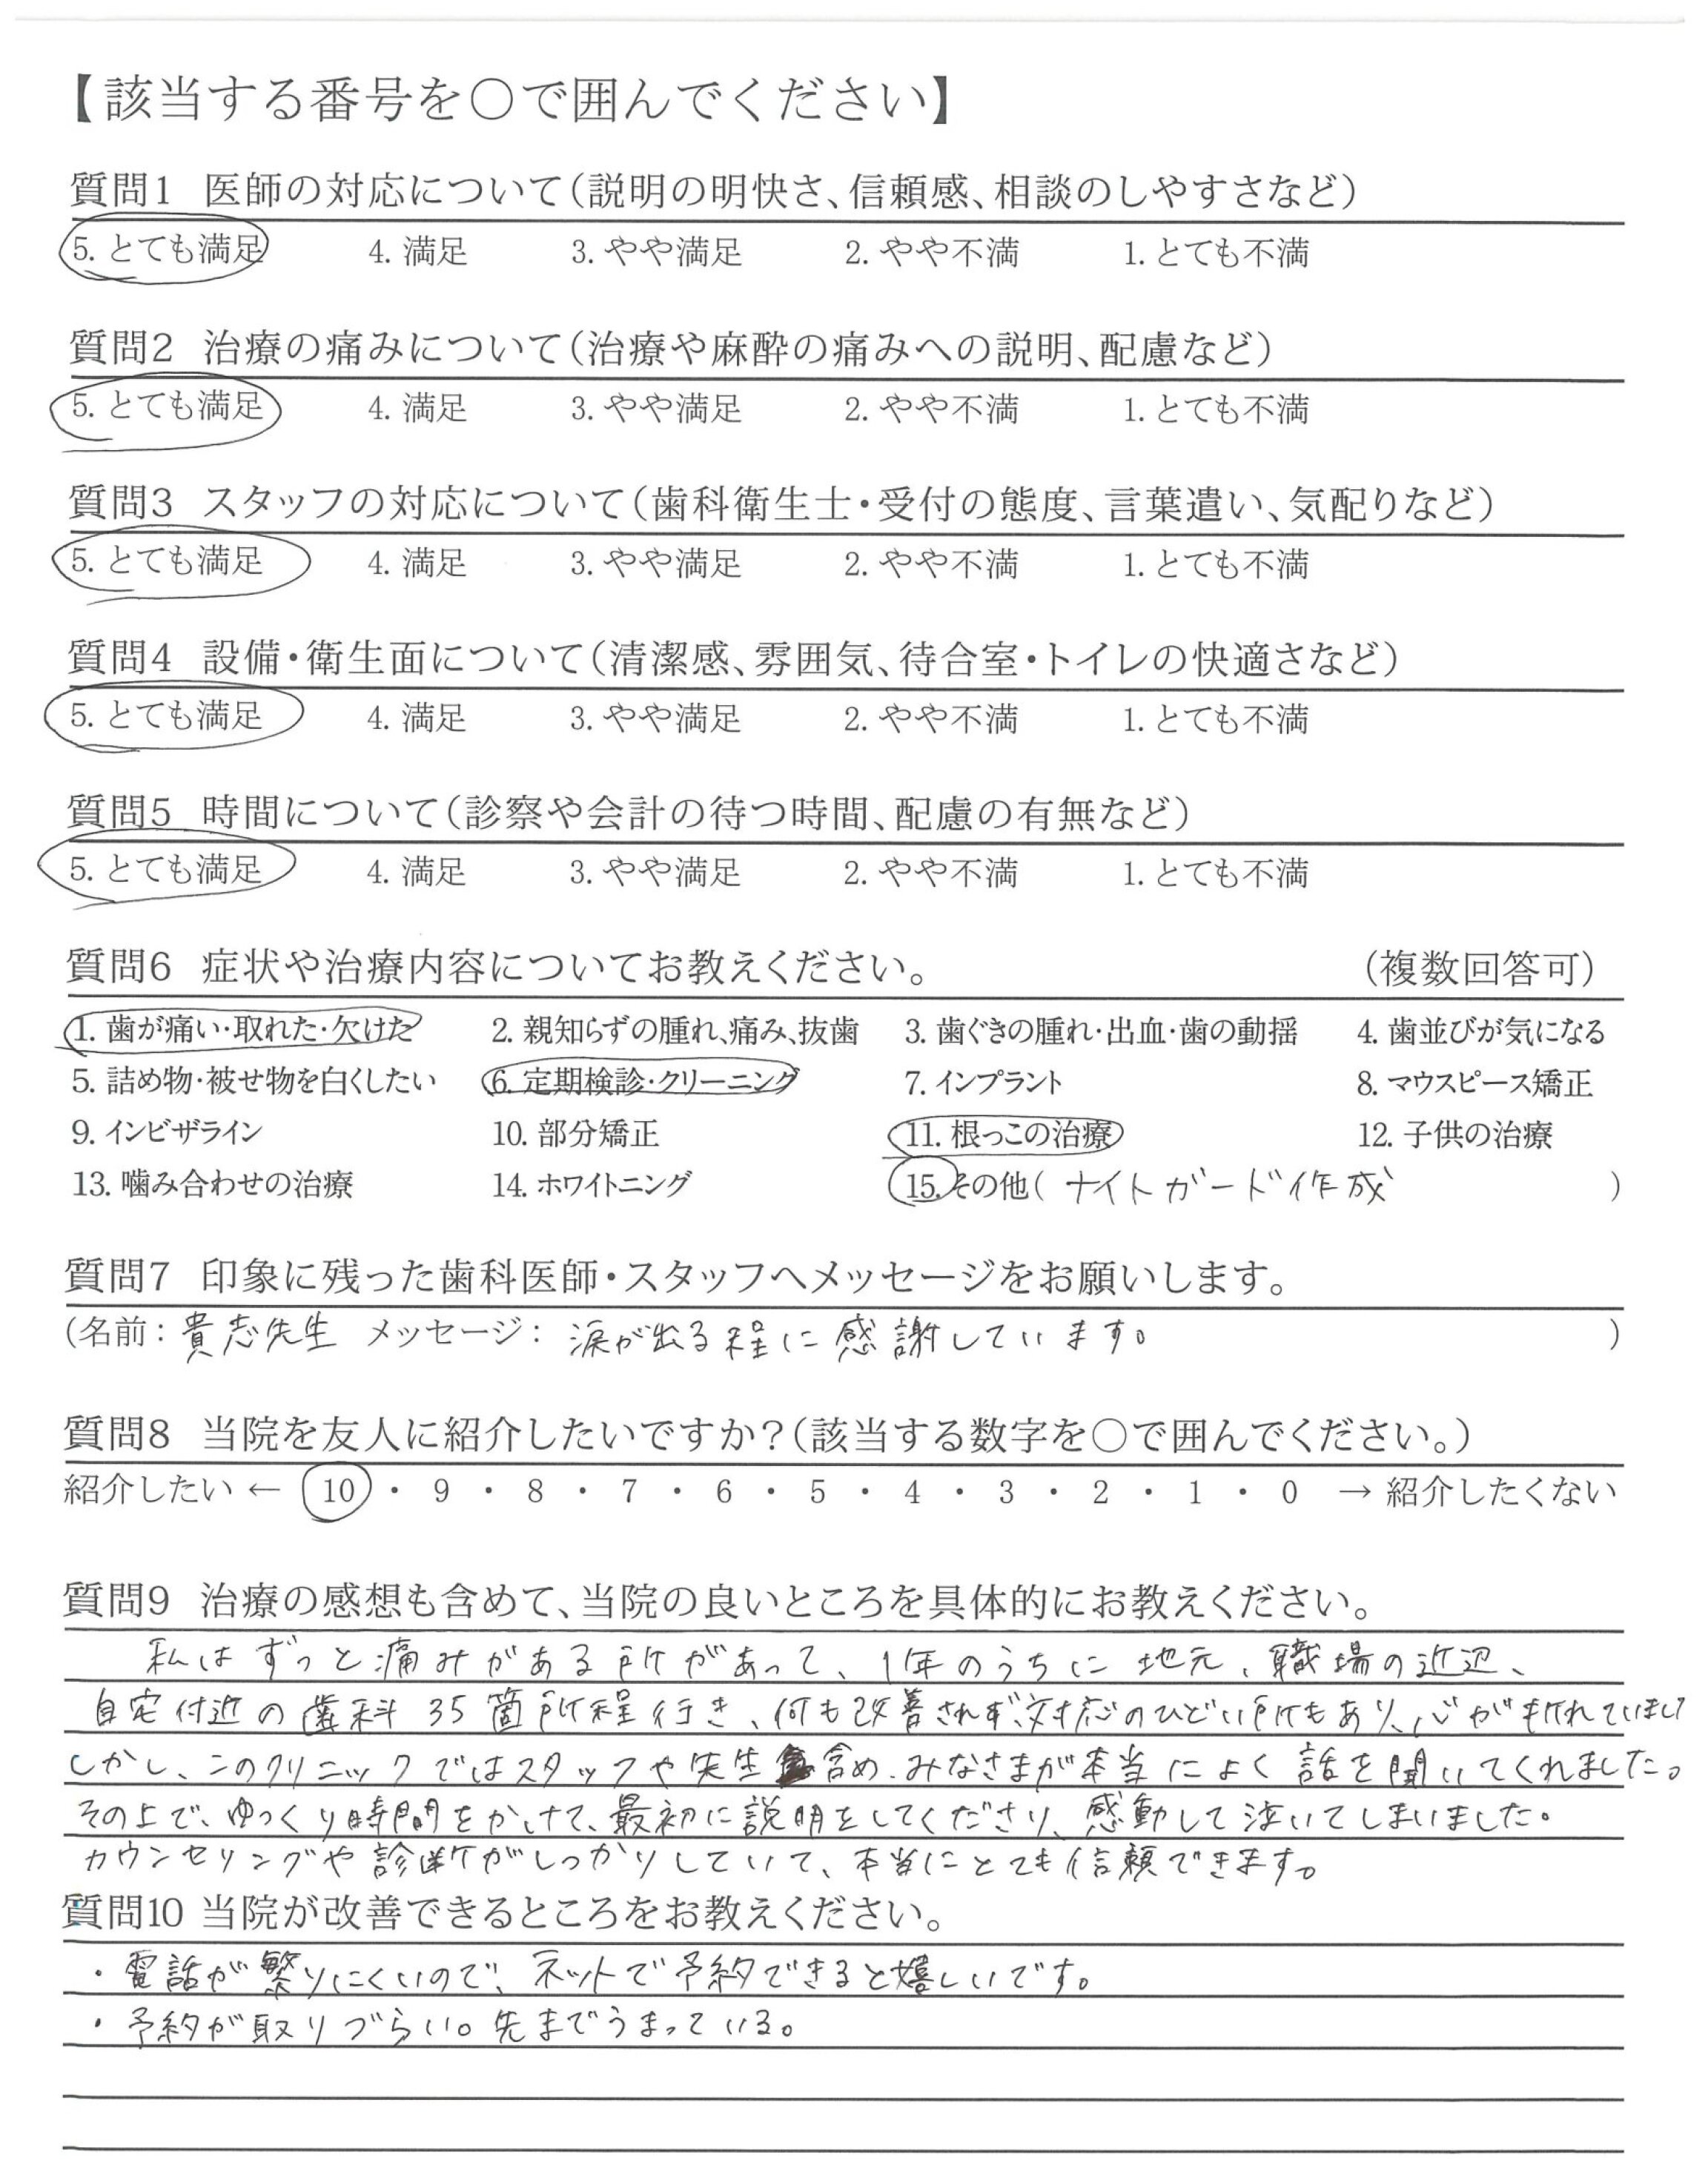 【該当する番号を○で囲んでください】
質問1 医師の対応について(説明の明快さ、信頼感、相談のしやすさなど)
5. とても満足 4. 満足 3. やや満足 2. やや不満 1. とても不満
質問2 治療の痛みについて(治療や麻酔の痛みへの説明、配慮など)
5. とても満足 4. 満足 3. やや満足 2. やや不満 1. とても不満
質問3 スタッフの対応について(歯科衛生士・受付の態度、言葉遣い、気配りなど)
5. とても満足 4. 満足 3. やや満足 2. やや不満 1. とても不満
質問4 設備・衛生面について(清潔感、雰囲気、待合室・トイレの快適さなど)
5. とても満足 4. 満足 3. やや満足 2. やや不満 1. とても不満
質問5 時間について(診察や会計の待つ時間、配慮の有無など)
5. とても満足 4. 満足 3. やや満足 2. やや不満 1. とても不満
質問6 症状や治療内容についてお教えください。 (複数回答可)
1. 歯が痛い・取れた・欠けた 2. 親知らずの腫れ、痛み、抜歯 3. 歯ぐきの腫れ・出血・歯の動揺 4. 歯並びが気になる
5. 詰め物・被せ物を白くしたい 6. 定期検診・クリーニング 7. インプラント 8. マウスピース矯正
9. インビザライン 10. 部分矯正 11. 根っこの治療 12. 子供の治療
13. 噛み合わせの治療 14. ホワイトニング 15. その他( ナイトガード作成 )
質問7 印象に残った歯科医師・スタッフへメッセージをお願いします。
(名前: 貴志先生 メッセージ: 涙が出る程に感謝しています。 )
質問8 当院を友人に紹介したいですか?(該当する数字を○で囲んでください。)
紹介したい ← 10 ・ 9 ・ 8 ・ 7 ・ 6 ・ 5 ・ 4 ・ 3 ・ 2 ・ 1 ・ 0 → 紹介したくない
質問9 治療の感想も含めて、当院の良いところを具体的にお教えください。
私はずっと痛みがある所があって、1年のうちに地元、職場の近辺、
自宅付近の歯科35箇所程行き、何も改善されず、対応のひどい所もあり、心が折れていまし
しかし、このクリニックではスタッフや先生含め、みなさまが本当によく話を聞いてくれました。
その上で、ゆっくり時間をかけて、最初に説明をしてくださり、感動して泣いてしまいました。
カウンセリングや診断がしっかりしていて、本当にとても信頼できます。
質問10 当院が改善できるところをお教えください。
・電話が繋りにくいので、ネットで予約できると嬉しいです。
・予約が取りづらい。先までうまっている。